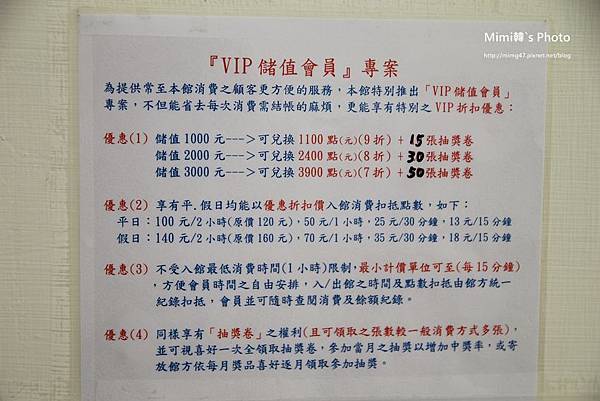 Mimi韓`s Photo
http://mimg47.pixnet.net/blog
『VIP 儲值會員』專案
為提供常至本館消費之顧客更方便的服務，本館特別推出「VIP 儲值會員」
專案，不但能省去每次消費需結帳的麻煩，更能享有特別之 VIP 折扣優惠：
優惠(1) 儲值 1000 元--->可兌換 1100 點(元)(9 折) + 15張抽獎卷
儲值 2000 元--->可兌換 2400 點(元)(8 折) + 30張抽獎卷
儲值 3000 元--->可兌換 3900 點(元)(7 折) + 50張抽獎卷
優惠(2) 享有平.假日均能以優惠折扣價入館消費扣抵點數，如下：
平日：100 元/2 小時(原價 120 元)，50 元/1 小時，25 元/30 分鐘，13 元/15 分鐘
假日：140 元/2 小時(原價 160 元)，70 元/1 小時，35 元/30 分鐘，18 元/15 分鐘
優惠(3) 不受入館最低消費時間(1 小時)限制，最小計價單位可至(每 15 分鐘)
，方便會員時間之自由安排，入/出館之時間及點數扣抵由館方統一
紀錄扣抵，會員並可隨時查閱消費及餘額紀錄。
優惠(4) 同樣享有「抽獎卷」之權利(且可領取之張數較一般消費方式多張)，
並可視喜好一次全領取抽獎卷，參加當月之抽獎以增加中獎率，或寄
放館方依每月獎品喜好逐月領取參加抽獎。